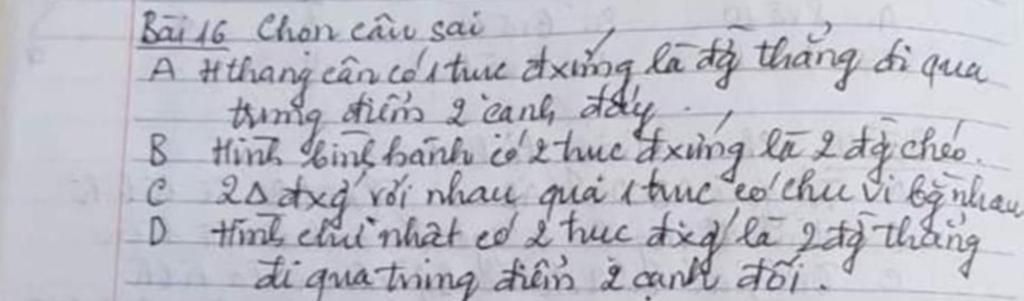 Bài 16 Chọn câu sai
A Hthang cân có 1 trục đxứng là đg thẳng đi qua
trung điểm 2 cạnh đáy.
B Hình bình hành có 2 trục đxứng là 2 đg chéo.
C 2Δ đxg với nhau qua 1 trục có chu vi bg nhau
D Hình chữ nhật có 2 trục đxg là 2 đg thẳng
đi qua trung điểm 2 cạnh đối.